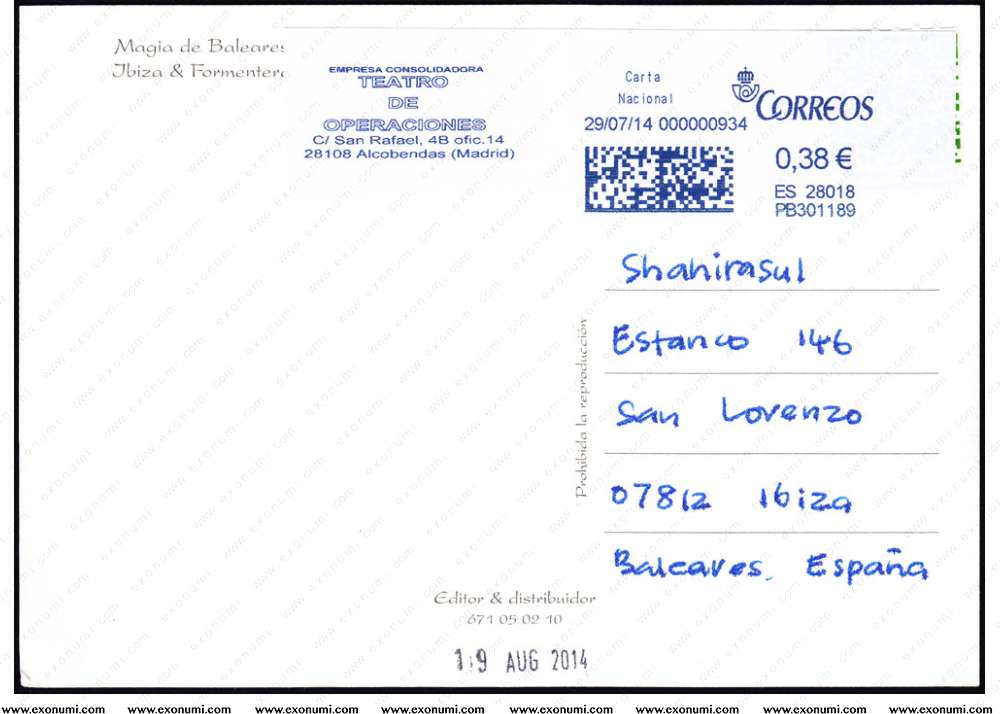 Magia de Baleares
Ibiza & Formentera
EMPRESA CONSOLIDADORA
TEATRO
DE
OPERACIONES
C/ San Rafael, 4B ofic.14
28108 Alcobendas (Madrid)
Carta
Nacional
29/07/14 000000934
CORREOS
0,38 €
ES 28018
PB301189
Shahirasul
Estanco 146
San Lorenzo
07812 Ibiza
Baleares. España
Prohibida la reproducción
Editor & distribuidor
671 05 02 10
19 AUG 2014
www.exonumi.com www.exonumi.com www.exonumi.com www.exonumi.com www.exonumi.com www.exonumi.com www.exonumi.com www.exonumi.com